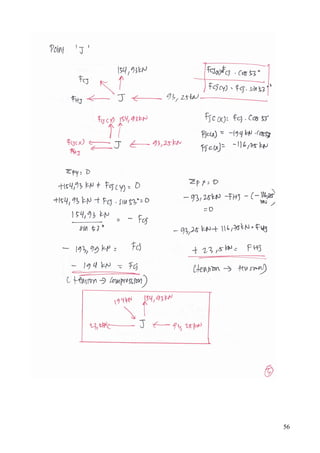 Point 'J'
154,93kN
FCJ
FHJ J 93,25kN
FCJ(x)= FCJ . Cos 53°
FCJ(y) = FCJ . sin 53°
FCJ(y) 154,93kN
FCJ(x)
FHJ J 93,25 kN
FJC(x): FCJ . Cos 53°
FJC(x) = -194 kN . Cos 53
FJC(x)= -116,75 kN
ΣPy= 0
+154,93 kN + FCJ(y) = 0
+154,93 kN + FCJ . sin 53°=0
154,93 kN = - FCJ
sin 53°
- 193,99 kN = FCJ
- 194 kN = FCJ
(tension → Compression)
ΣPx = 0
- 93,25kN -FHJ - (-116,75
kN)
=0
- 93,25 kN + 116,75 kN = FHJ
+ 23,5 kN = FHJ
(tension → tension)
194kN 154,93kN
23,5kN J 93,25kN
56